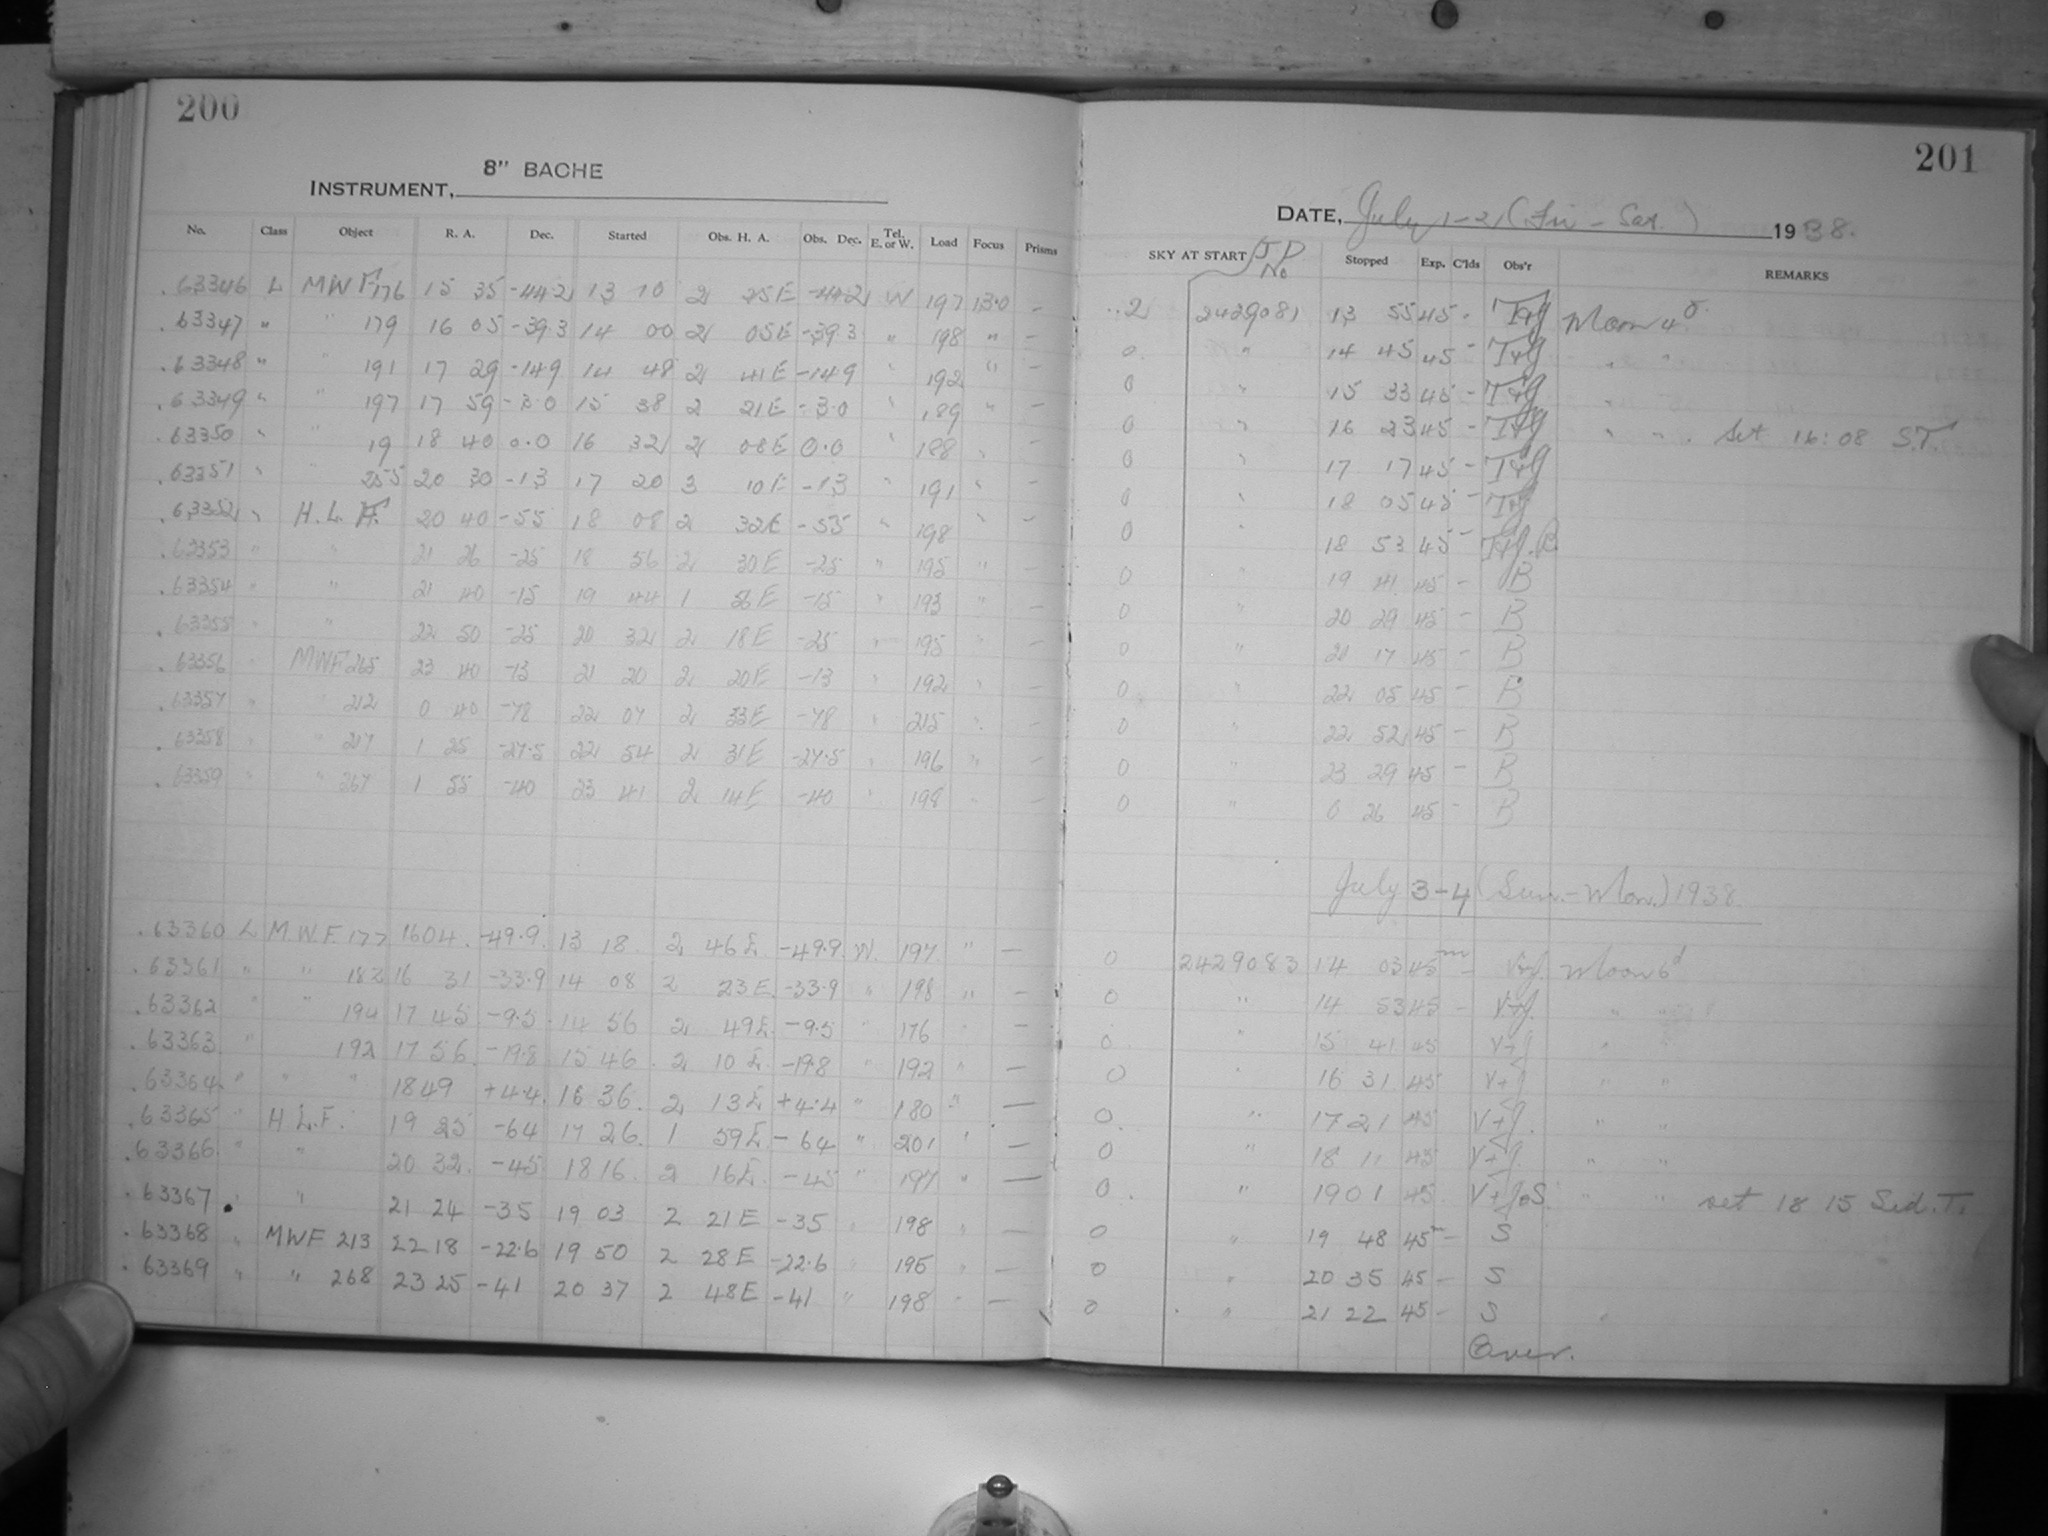 200
8" BACHE
INSTRUMENT,
No. Class Object R. A. Dec. Started Obs. H. A. Obs. Dec. Tel. E. or W. Load Focus Prisms
.63346 L MWF 176 15 35 -44.2 13 10 2 25E -44.2 W 197 13.0 –
.63347 " " 179 16 05 -39.3 14 00 2 05E -39.3 " 198 " –
.63348 " " 191 17 29 -14.9 14 48 2 41E -14.9 " 192 " –
.63349 " " 197 17 59 -3.0 15 38 2 21E -3.0 " 189 " –
.63350 " " 19 18 40 0.0 16 32 2 08E 0.0 " 188 " –
.63351 " " 255 20 30 -13 17 20 3 10E -13 " 191 " –
.63352 " H.L.F. 20 40 -55 18 08 2 32E -55 " 198 " –
.63353 " " 21 26 -25 18 56 2 30E -25 " 195 " –
.63354 " " 21 40 -15 19 44 1 56E -15 " 193 " –
.63355 " " 22 50 -25 20 32 2 18E -25 " 195 " –
.63356 " MWF 265 23 40 -13 21 20 2 20E -13 " 192 " –
.63357 " " 212 0 40 -78 22 07 2 33E -78 " 215 " –
.63358 " " 217 1 25 -27.5 22 54 2 31E -27.5 " 196 " –
.63359 " " 267 1 55 -40 23 41 2 14E -40 " 198 " –
.63360 L M.W.F. 177 16 04 -49.9 13 18 2 46E -49.9 W. 197 " –
.63361 " " 182 16 31 -33.9 14 08 2 23E -33.9 " 198 " –
.63362 " " 194 17 45 -9.5 14 56 2 49E -9.5 " 176 " –
.63363 " " 192 17 56 -19.8 15 46 2 10E -19.8 " 192 " –
.63364 " " " 18 49 +4.4 16 36 2 13E +4.4 " 180 " –
.63365 " H.L.F. 19 25 -64 17 26 1 59E -64 " 201 " –
.63366 " " 20 32 -45 18 16 2 16E -45 " 197 " –
.63367 " " 21 24 -35 19 03 2 21E -35 " 198 " –
.63368 " MWF 213 22 18 -22.6 19 50 2 28E -22.6 " 195 " –
.63369 " " 268 23 25 -41 20 37 2 48E -41 " 198 " –
201
DATE, July 1-2 (Fri – Sat.) 1938.
SKY AT START J.D. No Stopped Exp. C'lds Obs'r REMARKS
2 2429081 13 55 45 - T+J Moon 4d
0 " 14 45 45 - T+J " "
0 " 15 33 45 - T+J "
0 " 16 23 45 - T+J " " . Set 16:08 S.T.
0 " 17 17 45 - T+J
0 " 18 05 45 - T+J
0 " 18 53 45 - T+J. B
0 " 19 41 45 - B
0 " 20 29 45 - B
0 " 21 17 45 - B
0 " 22 05 45 - B
0 " 22 52 45 - B
0 " 23 29 45 - B
0 " 0 26 45 - B
July 3-4 (Sun.-Mon.) 1938
0 2429083 14 03 45m – V+J. Moon 6d
0 " 14 53 45 - V+J. " "
0 " 15 41 45 V+J " "
0 " 16 31 45 V+J " "
0 " 17 21 45 V+J. " "
0 " 18 11 45 V+J. " "
0 " 19 01 45 V+J+S. " " set 18 15 Sid. T.
0 " 19 48 45m – S
0 " 20 35 45 – S
0 " 21 22 45 – S
Over.